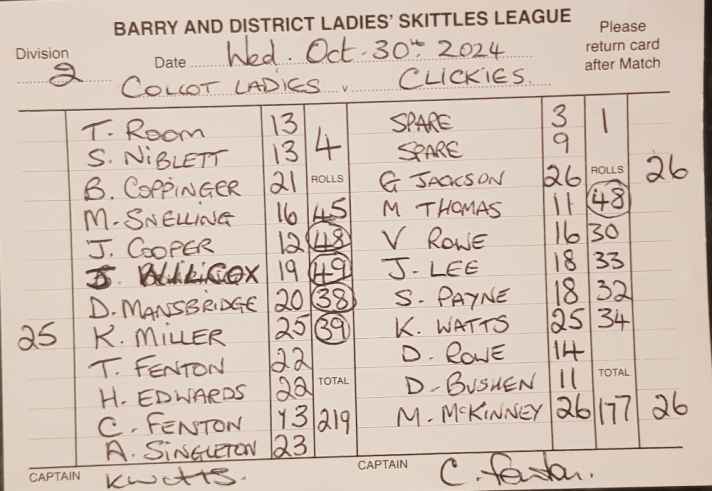 BARRY AND DISTRICT LADIES' SKITTLES LEAGUE
Division 2 Date Wed. Oct. 30th. 2024 Please return card after Match
COLCOT LADIES v CLICKIES.
T. ROOM 13 4 SPARE 3 1
S. NIBLETT 13 SPARE 9
B. COPPINGER 21 ROLLS G JACKSON 26 ROLLS 26
M. SNELLING 16 45 M THOMAS 11 48
J. COOPER 12 48 V ROWE 16 30
WILLCOX 19 49 J. LEE 18 33
D. MANSBRIDGE 20 38 S. PAYNE 18 32
25 K. MILLER 25 39 K. WATTS 25 34
T. FENTON 22 D. ROWE 14
H. EDWARDS 22 TOTAL D. BUSHEN 11 TOTAL
C. FENTON 13 219 M. McKINNEY 26 177 26
A. SINGLETON 23
CAPTAIN K Watts. CAPTAIN C. Fenton.